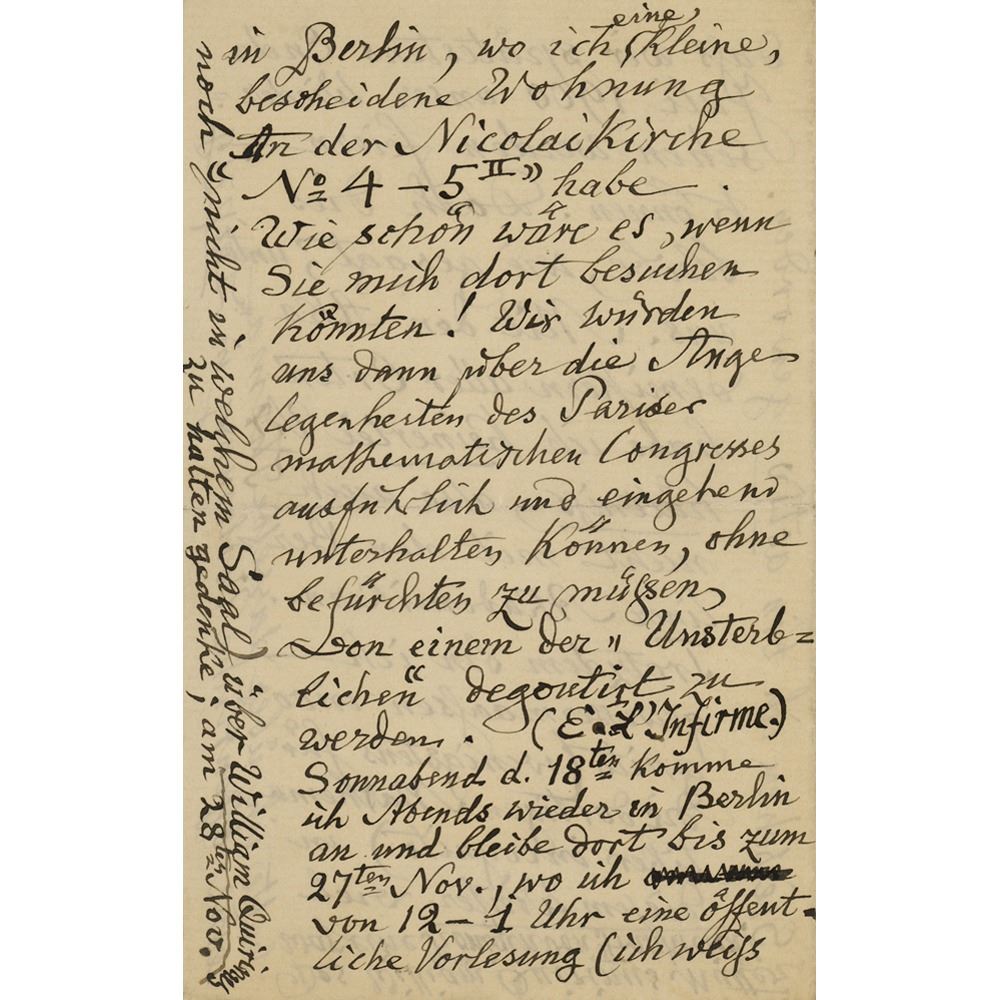 in Berlin, wo ich eine kleine,
bescheidene Wohnung
An der Nicolaikirche
No 4 – 5 II" habe.
Wie schön wäre es, wenn
Sie mich dort besuchen
könnten! Wir würden
uns dann über die Ange
legenheiten des Pariser
mathematischen Congresses
ausführlich und eingehend
unterhalten können, ohne
befürchten zu müssen,
von einem der „Unsterb=
lichen“ degoutirt zu
werden. (E. L'Infirme.)
Sonnabend d. 18ten komme
ich Abends wieder in Berlin
an und bleibe dort bis zum
27ten Nov., wo ich
von 12 – 1 Uhr eine öffent-
liche Vorlesung (ich weiss
noch nicht in welchem Saal) über William Quirin
zu halten gedenke; am 28ten Nov.